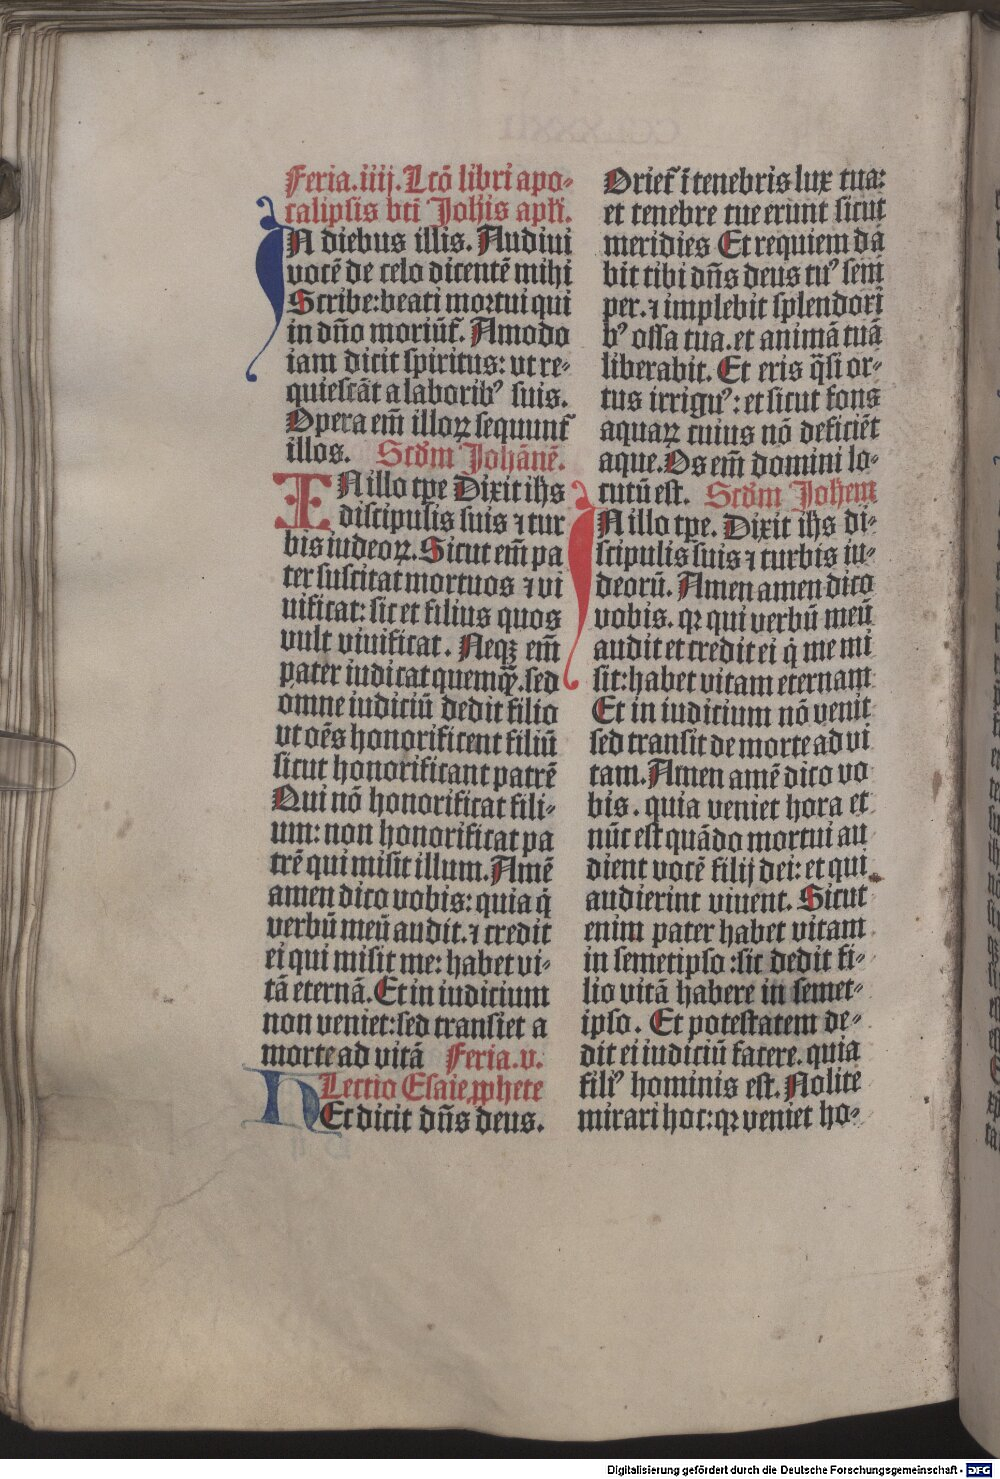 Feria.iiij. Lcō libri apo-
calipsis bti Johīs apłi.
IN diebus illis. Audiui
vocē de celo dicentē mihi
Scribe: beati mortui qui
in dn̄o moriūt᷑. Amodo
iam dicit spiritus: vt re-
quiescāt a laboribꝰ suis.
Opera em̄ illoꝝ sequunt᷑
illos. Scd̄m Johānē.
IN illo tp̄e Dixit ih̄s
discipulis suis ⁊ tur
bis iudeoꝝ. Sicut em̄ pa
ter suscitat mortuos ⁊ vi
uificat: sic et filius quos
vult viuificat. Neqꝫ em̄
pater iudicat quemq̄. sed
omne iudiciū dedit filio
vt oēs honorificent filiū
sicut honorificant patrē
Qui nō honorificat fili-
um: non honorificat pa
trē qui misit illum. Amē
amen dico vobis: quia q̇
verbū meū audit. ⁊ credit
ei qui misit me: habet vi-
tā eternā. Et in iudicium
non veniet: sed transiet a
morte ad vitā Feria.v.
Lectio Esaie ꝓphete
HEc dicit dn̄s deus.
Oriet᷑ ī tenebris lux tua:
et tenebre tue erunt sicut
meridies Et requiem da
bit tibi dn̄s deus tuꝰ sem
per. ⁊ implebit splendori
bꝰ ossa tua. et animā tuā
liberabit. Et eris q̄si or-
tus irriguꝰ: et sicut fons
aquaꝝ cuius nō deficiēt
aque. Os em̄ domini lo-
cutū est. Scd̄m Johem
IN illo tp̄e. Dixit ih̄s di-
scipulis suis ⁊ turbis iu-
deorū. Amen amen dico
vobis. qꝛ qui verbū meū
audit et credit ei q̇ me mi
sit: habet vitam eternam
Et in iudicium nō venit
sed transit de morte ad vi
tam. Amen amē dico vo
bis. quia veniet hora et
nūc est quādo mortui au
dient vocē filij dei: et qui
audierint viuent. Sicut
enim pater habet vitam
in semetipso: sic dedit fi-
lio vitā habere in semet-
ipso. Et potestatem de-
dit ei iudiciū facere. quia
filiꝰ hominis est. Nolite
mirari hoc: qꝛ veniet ho-
Digitalisierung gefördert durch die Deutsche Forschungsgemeinschaft - DFG